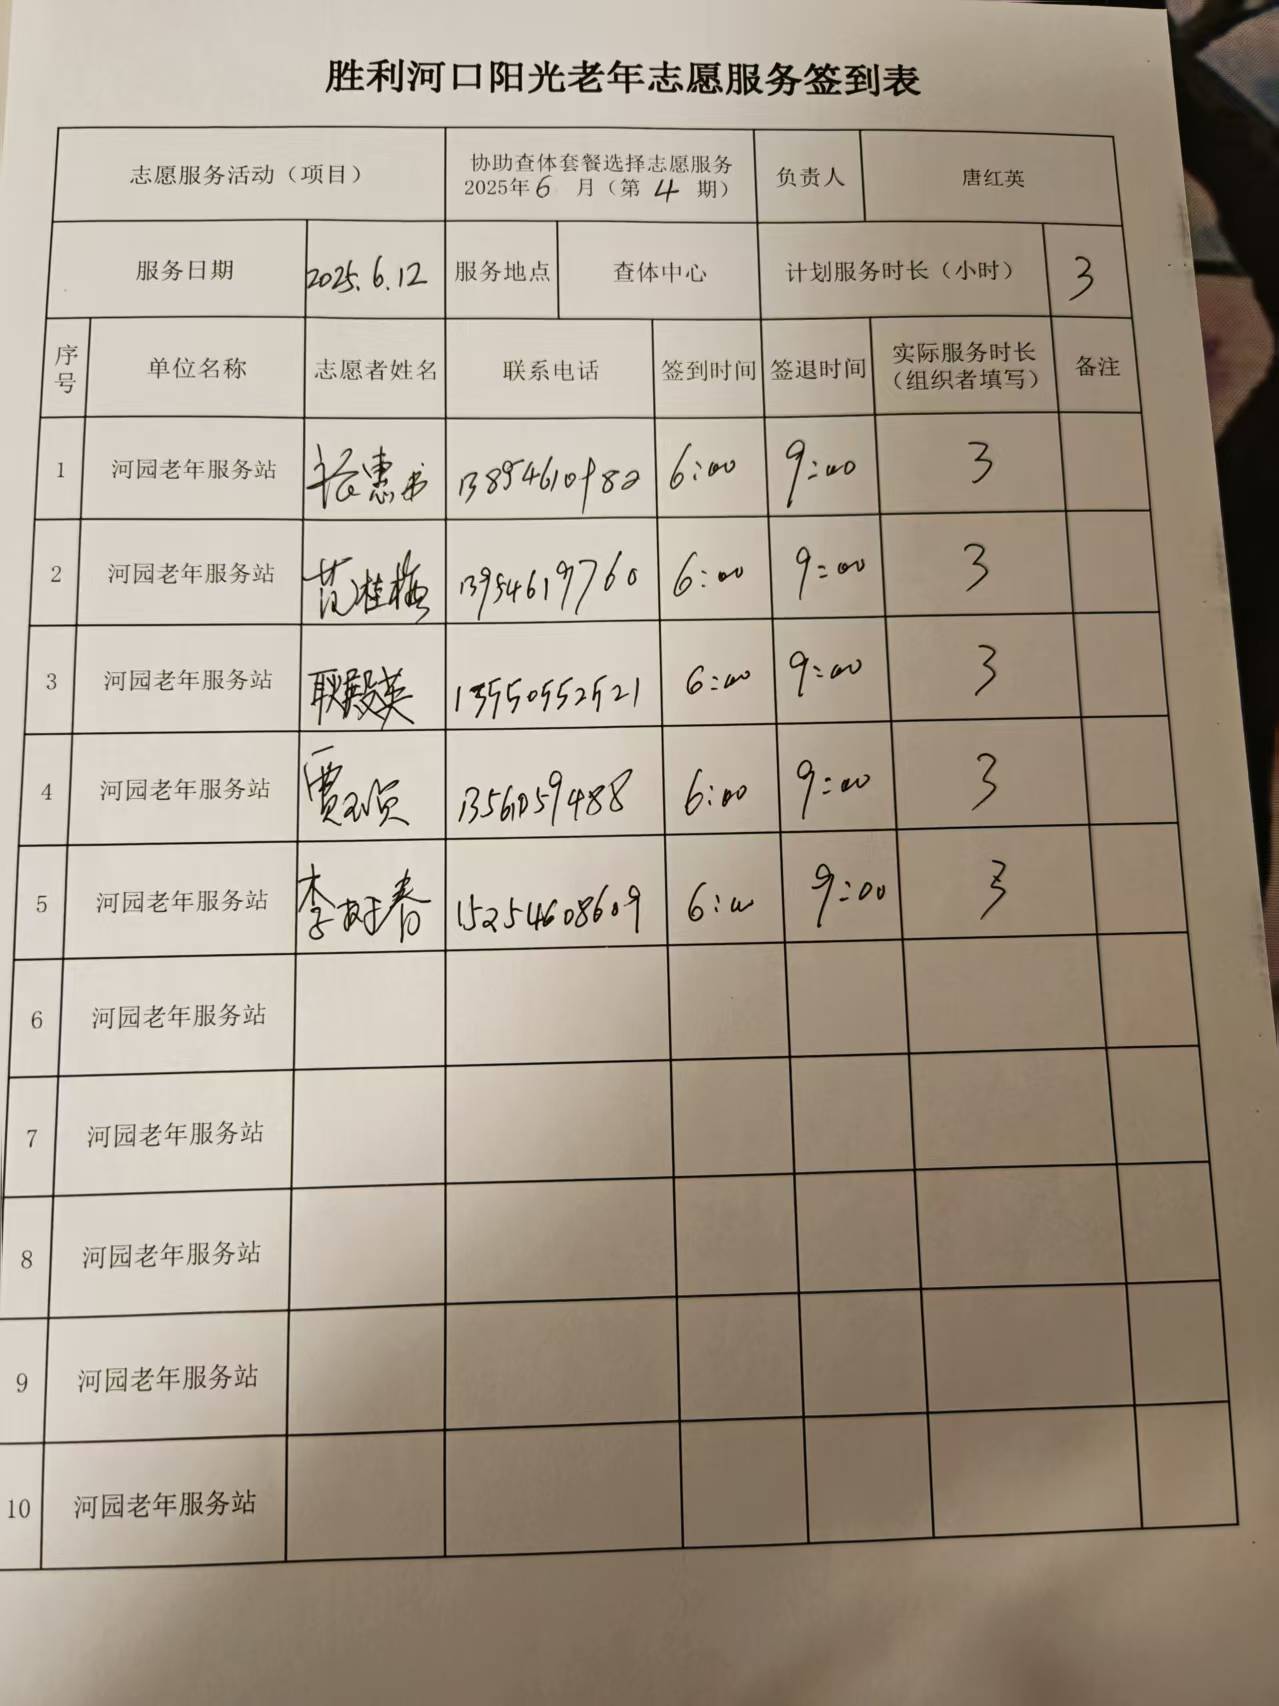 胜利河口阳光老年志愿服务签到表
志愿服务活动（项目） 协助查体套餐选择志愿服务 2025年6月（第4期） 负责人 唐红英
服务日期 2025.6.12 服务地点 查体中心 计划服务时长（小时） 3
序号 单位名称 志愿者姓名 联系电话 签到时间 签退时间 实际服务时长（组织者填写） 备注
1 河园老年服务站 6:00 9:00 3
2 河园老年服务站 范桂梅 13954619760 6:00 9:00 3
3 河园老年服务站 耿殿英 13550552521 6:00 9:00 3
4 河园老年服务站 13561059488 6:00 9:00 3
5 河园老年服务站 15254608609 6:00 9:00 3
6 河园老年服务站
7 河园老年服务站
8 河园老年服务站
9 河园老年服务站
10 河园老年服务站